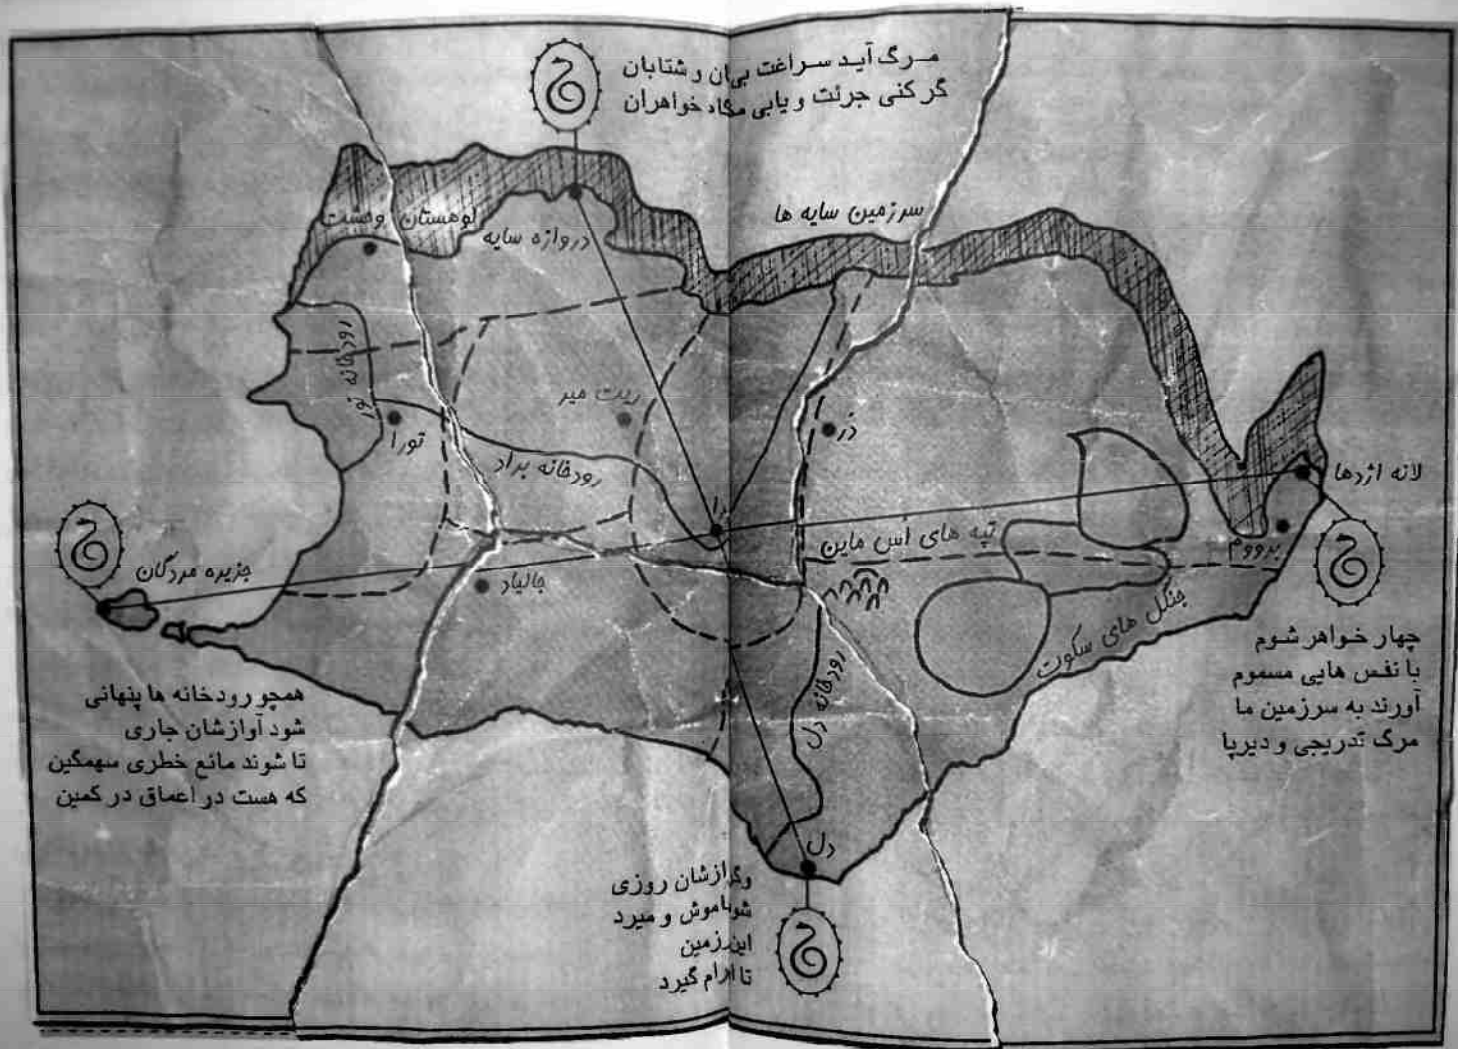 مرگ آید سراغت بی‌ان و شتابان
گر کنی جرئت و یابی مکاد خواهران
سرزمین سایه ها
کوهستان وحشت
دروازه سایه
رودخانه تورا
تورا
ریت میر
رودخانه براد
را
در
لانه اژدها
بروووم
تپه های اس ماین
جنگل های سکوت
جزیره مردگان
جالیاد
رودخانه دل
دل
چهار خواهر شوم
با نفس هایی مسموم
آورند به سرزمین ما
مرگ تدریجی و دیرپا
همچو رودخانه ها پنهانی
شود آوازشان جاری
تا شوند مانع خطری سهمگین
که هست در اعماق در کمین
وگر ازشان روزی
این زمین
تا آرام گیرد